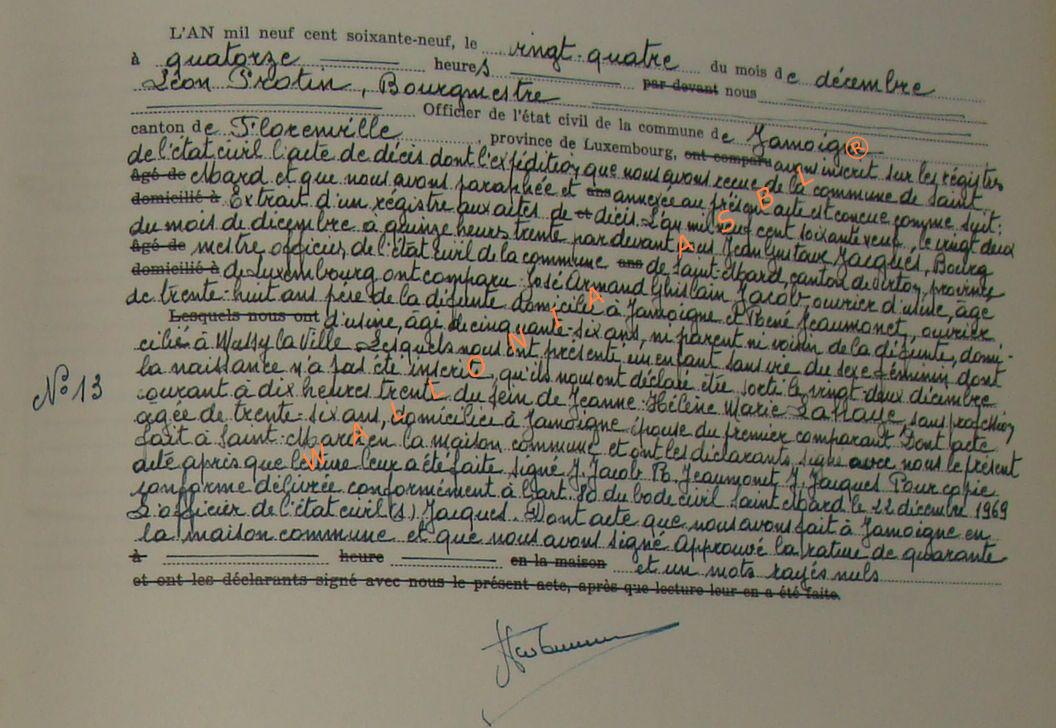 L'AN mil neuf cent soixante-neuf, le vingt-quatre du mois de décembre
à quatorze heures par devant nous
Léon Protin, Bourgmestre
Officier de l'état civil de la commune de Jamoigne
canton de Florenville province de Luxembourg, ont comparu avons inscrit sur les régistres
de l'état civil l'acte de décès dont l'expédition que nous avons reçue de la commune de Saint
âgé de Mard et que nous avons paraphée et ans annexée au présent acte est conçue comme suit:
domicilié à Extrait d'un régistre aux actes de et décès L'an mil neuf cent soixante neuf, le vingt deux
du mois de décembre à quinze heures trente par devant nous Jean Gustave Jacques, Bourg
âgé de mestre officier de l'état civil de la commune ans de Saint-Mard, canton de Virton, province
domicilié à de Luxembourg ont comparu: José Armand Ghislain Jacob, ouvrier d'usine, âgé
de trente-huit ans père de la défunte domicilié à Jamoigne et René Jeaumonet, ouvrier
Lesquels nous ont d'usine, âgé de cinquante-six ans, ni parent ni voisin de la défunte, domi-
cilié à Mussy la Ville Lesquels nous ont présenté un enfant sans vie du sexe féminin dont
la naissance n'a pas été inscrite, qu'ils nous ont déclaré être sorti le vingt-deux décembre
N° 13
courant à dix heures trente du sein de Jeanne Hélène Marie sans profession
agée de trente-six ans, domiciliée à Jamoigne épouse du premier comparant Dont acte
fait à Saint-Mard en la maison commune et ont les déclarants signé avec nous le présent
acte après que lecture leur a été faite signé J. Jacob R. Jeaumonet J. Jacques Pour copie
conforme délivrée conformément à l'art. 80 du Code civil Saint Mard le 22 décembre 1969
L'officier de l'état civil (s) Jacques. Dont acte que nous avons fait à Jamoigne en
la maison commune et que nous avons signé Approuvé la rature de quarante
à heure en la maison et un mots rayés nuls
et ont les déclarants signé avec nous le présent acte, après que lecture leur en a été faite.
WALLONIA ASBL ®